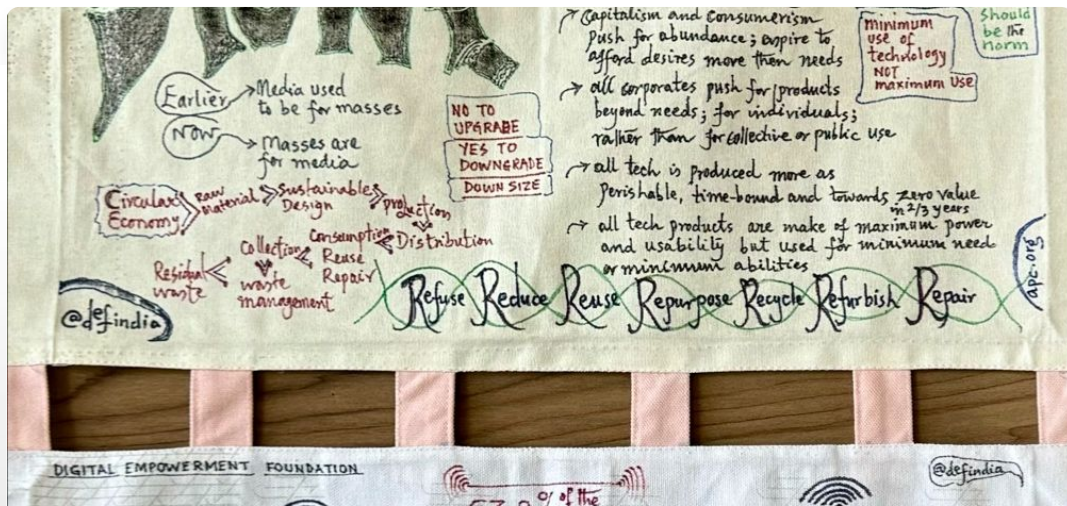 Earlier
Media used
to be for masses
Now
Masses are
for media
Circular
Economy
Raw
material
Sustainable
Design
production
Distribution
Consumption
Reuse
Repair
Collection
waste
management
Residual
waste
@defindia
NO TO
UPGRADE
YES TO
DOWNGRADE
DOWN SIZE
Capitalism and Consumerism
push for abundance; aspire to
afford desires more then needs
all corporates push for products
beyond needs; for individuals;
rather than for collective or public use
all tech is produced more as
perishable, time-bound and towards zero value
in 2/3 years
all tech products are make of maximum power
and usability but used for minimum need
or minimum abilities
minimum
use of
technology
NOT
maximum use
should
be the
norm
apc.org
Refuse Reduce Reuse Repurpose Recycle Refurbish Repair
DIGITAL EMPOWERMENT FOUNDATION
% of the
@defindia